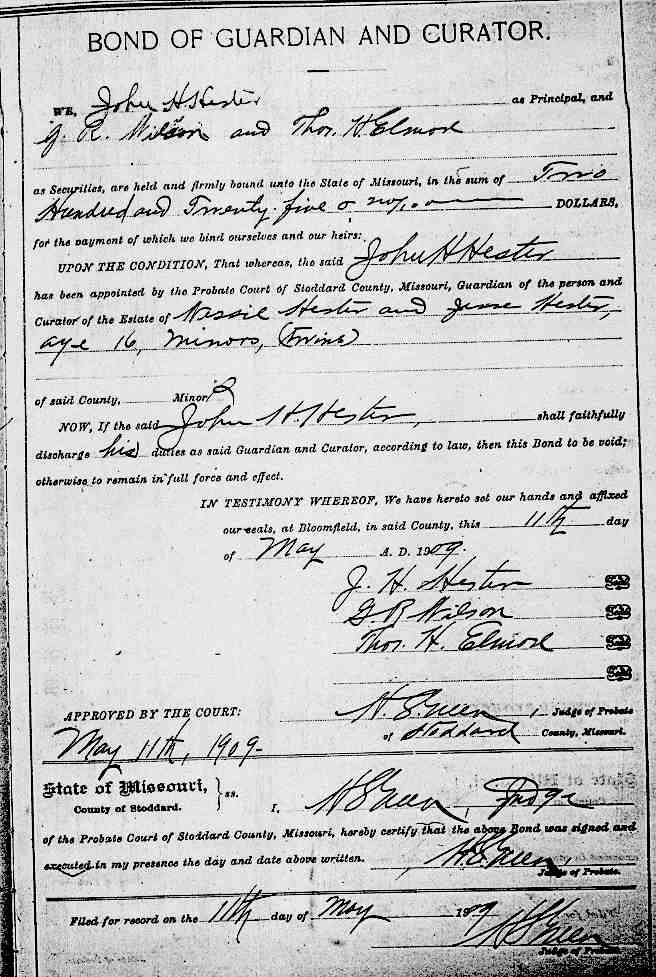 BOND OF GUARDIAN AND CURATOR.
WE, John H Hester as Principal, and
G. R. Wilson and Thos. H. Elmore
as Securities, are held and firmly bound unto the State of Missouri, in the sum of Two
Hundred and Twenty five & no/00 DOLLARS,
for the payment of which we bind ourselves and our heirs:
UPON THE CONDITION, That whereas, the said John H Hester
has been appointed by the Probate Court of Stoddard County, Missouri, Guardian of the person and
Curator of the Estate of Nessie Hester and Jesse Hester,
age 16, minors, (Twins)
of said County, Minors
NOW, If the said John H. Hester, shall faithfully
discharge his duties as said Guardian and Curator, according to law, then this Bond to be void;
otherwise to remain in full force and effect.
IN TESTIMONY WHEREOF, We have hereto set our hands and affixed
our seals, at Bloomfield, in said County, this 11th day
of May A. D. 1909.
J. H. Hester Seal
G R Wilson Seal
Thos. H. Elmore Seal
Seal
APPROVED BY THE COURT: Green, Judge of Probate
May 11th, 1909- of Stoddard County, Missouri.
State of Missouri, } ss.
County of Stoddard. I, Green, Judge
of the Probate Court of Stoddard County, Missouri, hereby certify that the above Bond was signed and
executed in my presence the day and date above written. Green,
Judge of Probate.
Filed for record on the 11th day of May 1909
Green
Judge of Probate.